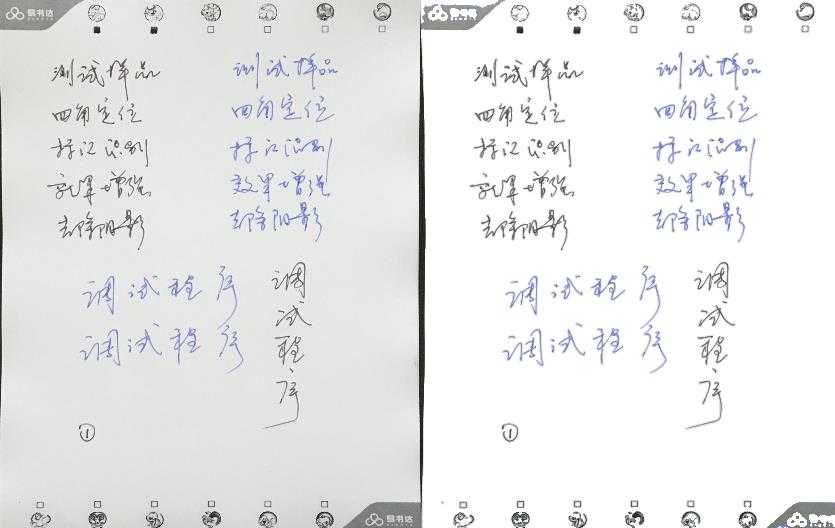 易书达
测试样品 测试样品
四角定位 四角定位
标记识别 标记识别
效果增强 效果增强
去除阴影 去除阴影
调试程序
调试程序
调试程序
①
易书达
测试样品 测试样品
四角定位 四角定位
标记识别 标记识别
效果增强 效果增强
去除阴影 去除阴影
调试程序
调试程序
调试程序
①